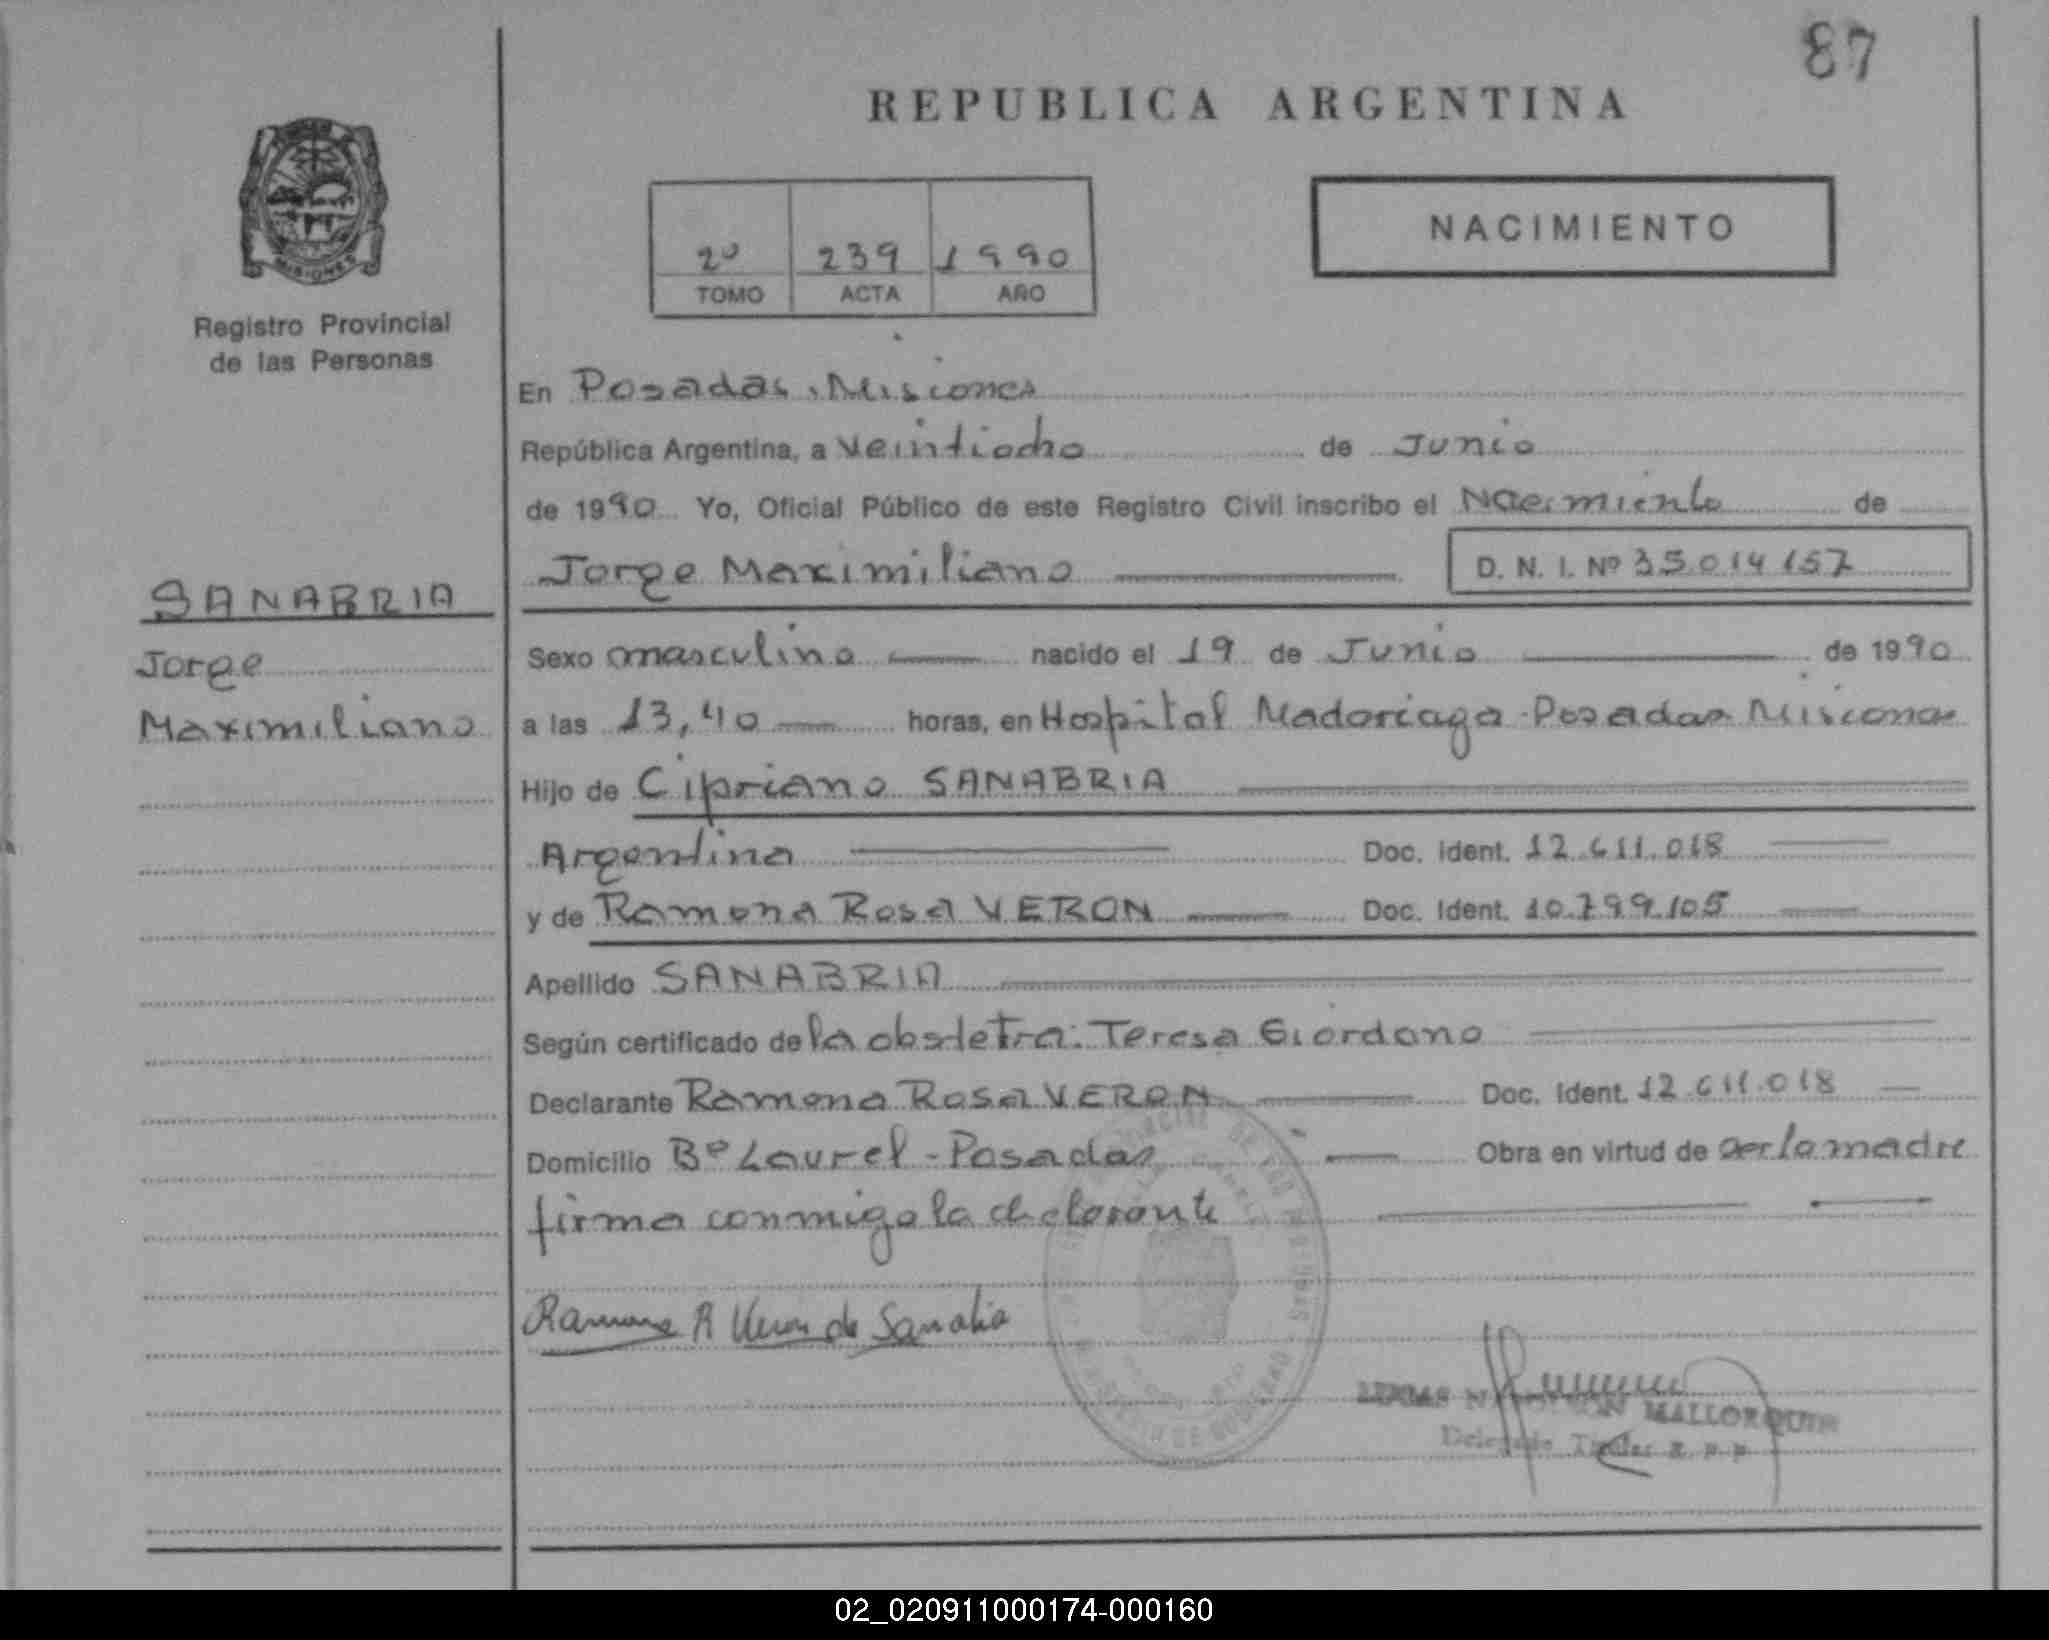 87
REPUBLICA ARGENTINA
NACIMIENTO
2º 239 1990
TOMO ACTA AÑO
MISIONES
Registro Provincial
de las Personas
En Posadas, Misiones
República Argentina, a veintiocho de Junio
de 1990 Yo, Oficial Público de este Registro Civil inscribo el Nacimiento de
Jorge Maximiliano D. N. I. Nº 35.014.157
SANABRIA
Jorge
Maximiliano
Sexo masculino nacido el 19 de Junio de 1990
a las 13,40 horas, en Hospital Madariaga-Posadas Misiones
Hijo de Cipriano SANABRIA
Argentina Doc. Ident. 12.611.018
y de Ramona Rosa VERON Doc. Ident. 10.799.105
Apellido SANABRIA
Según certificado de la obstetra: Teresa Giordano
Declarante Ramona Rosa VERON Doc. Ident. 12.611.018
Domicilio Bº Laurel - Posadas Obra en virtud de ser la madre
firma conmigo la declarante
Ramona R Veron de Sanabria
MALLORQUIN
Delegado Titular R. P. P.
02_020911000174-000160